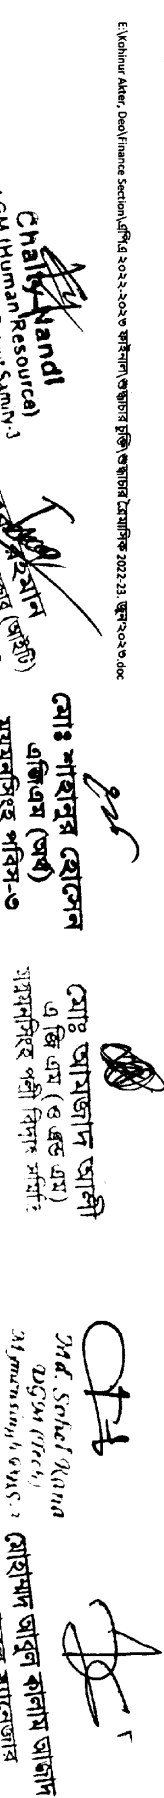 E:\Kohinur Akter, Deo\Finance Section\এপিএ ২০২২-২০২৩ ফাইনাল\শুদ্ধাচার চুক্তি\শুদ্ধাচার ত্রৈমাসিক 2022-23. জুন'২০২৩.doc
Chalty Nandi
AGM (Human Resource)
মোঃ শাহানুর হোসেন
এজিএম (অর্থ)
ময়মনসিংহ পবিস-৩
মোঃ আমজাদ আলী
এ জি এম (ও এন্ড এম)
ময়মনসিংহ পল্লী বিদ্যুৎ সমিতি
Md. Sohel Rana
DGM (Tech.)
Mymensingh
মোহাম্মদ আবুল কালাম আজাদ